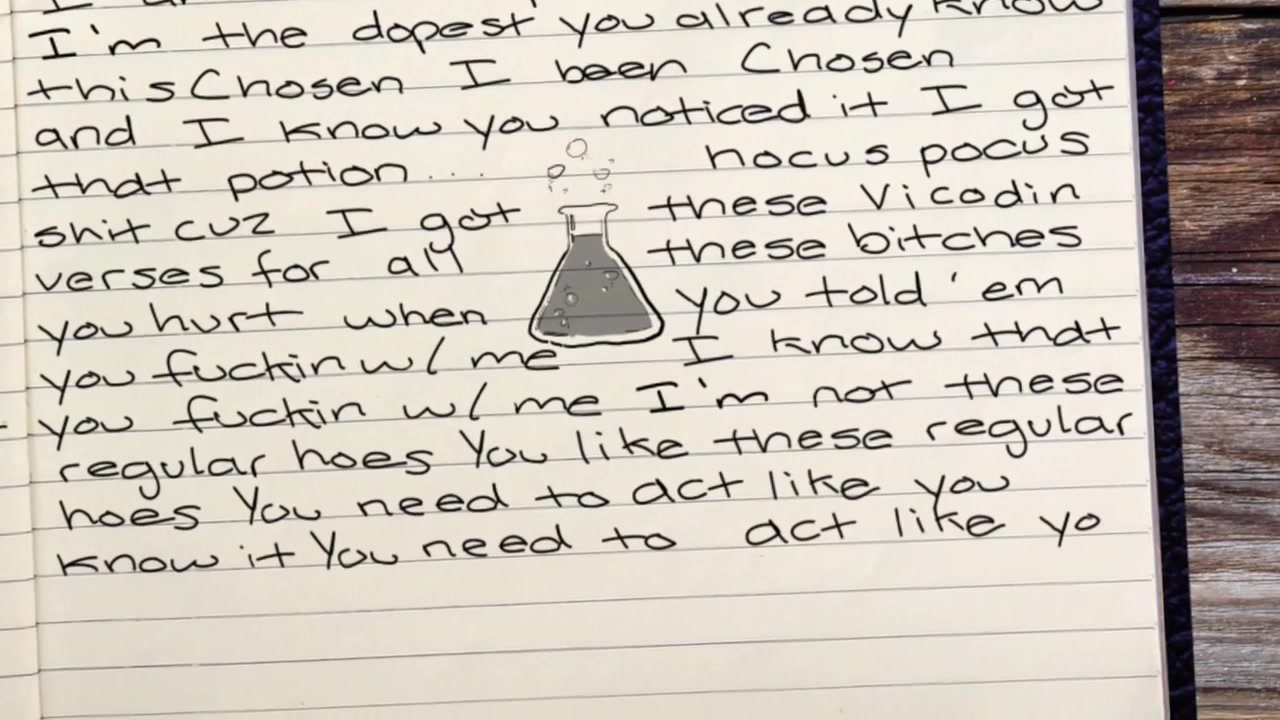 I'm the dopest you already know
thisChosen I been Chosen
and I know you noticed it I got
that potion.... hocus pocus
shit cuz I got these Vicodin
verses for all these bitches
you hurt when you told 'em
you fuckin w/ me I know that
you fuckin w/ me I'm not these
regular hoes You like these regular
hoes You need to act like you
know it You need to act like yo